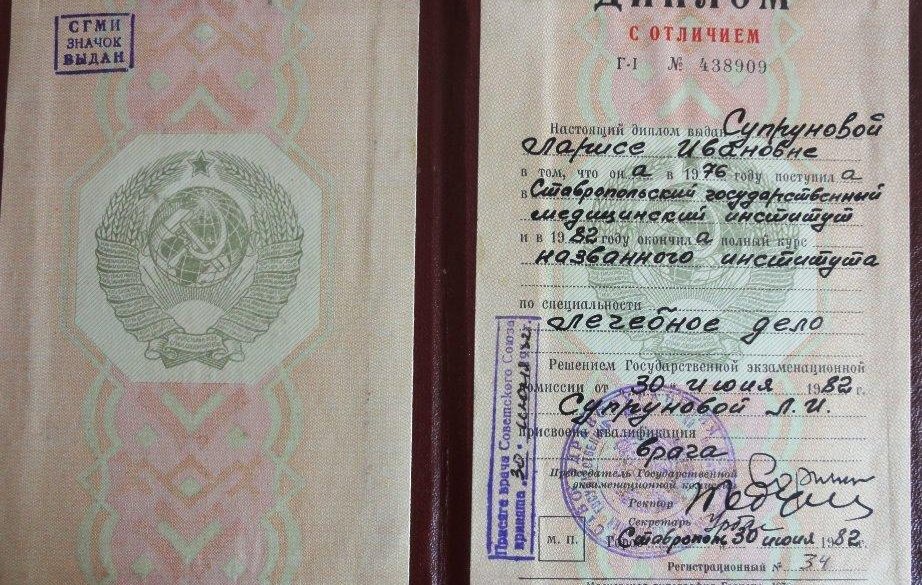 СГМИ
ЗНАЧОК
ВЫДАН
ДИПЛОМ
С ОТЛИЧИЕМ
Г-I № 438909
Настоящий диплом выдан Супруновой
Ларисе Ивановне
в том, что он а в 1976 году поступил а
в Ставропольский государственный
медицинский институт
и в 1982 году окончил а полный курс
названного института
по специальности
лечебное дело
Решением Государственной экзаменационной
комиссии от 30 июня 1982 г.
Супруновой Л.И.
присвоена квалификация
врача
Председатель Государственной
экзаменационной
Ректор
Секретарь
М. П.
Ставрополь 30 июня 1982
Регистрационный № 34
Присяга врача Советского Союза
принята 30